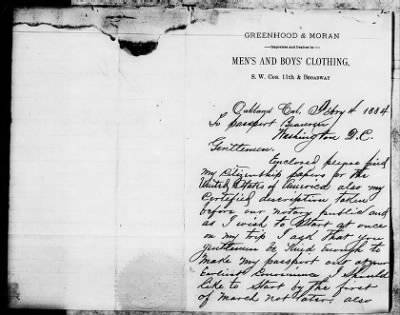 GREENHOOD & MORAN
Importers and Dealers in
MEN'S AND BOYS' CLOTHING,
S. W. Cor. 11th & Broadway
Oakland Cal, Febry 4 1884
To Passport Beaureu
Washington D.C.
Gentlemen.
Enclosed please find
my Citizenship papers for the
United States of America also my
Certefied description taken
before our notary public and
as I wish to Start at once
on my trip I ask that you
gentlemen be Kind enough to
make my passport out at your
Earliest Convinince I should
like to Start by the first
of March not later also